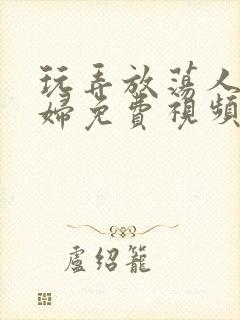 玩弄放荡人
婦免費視頻
盧绍籠